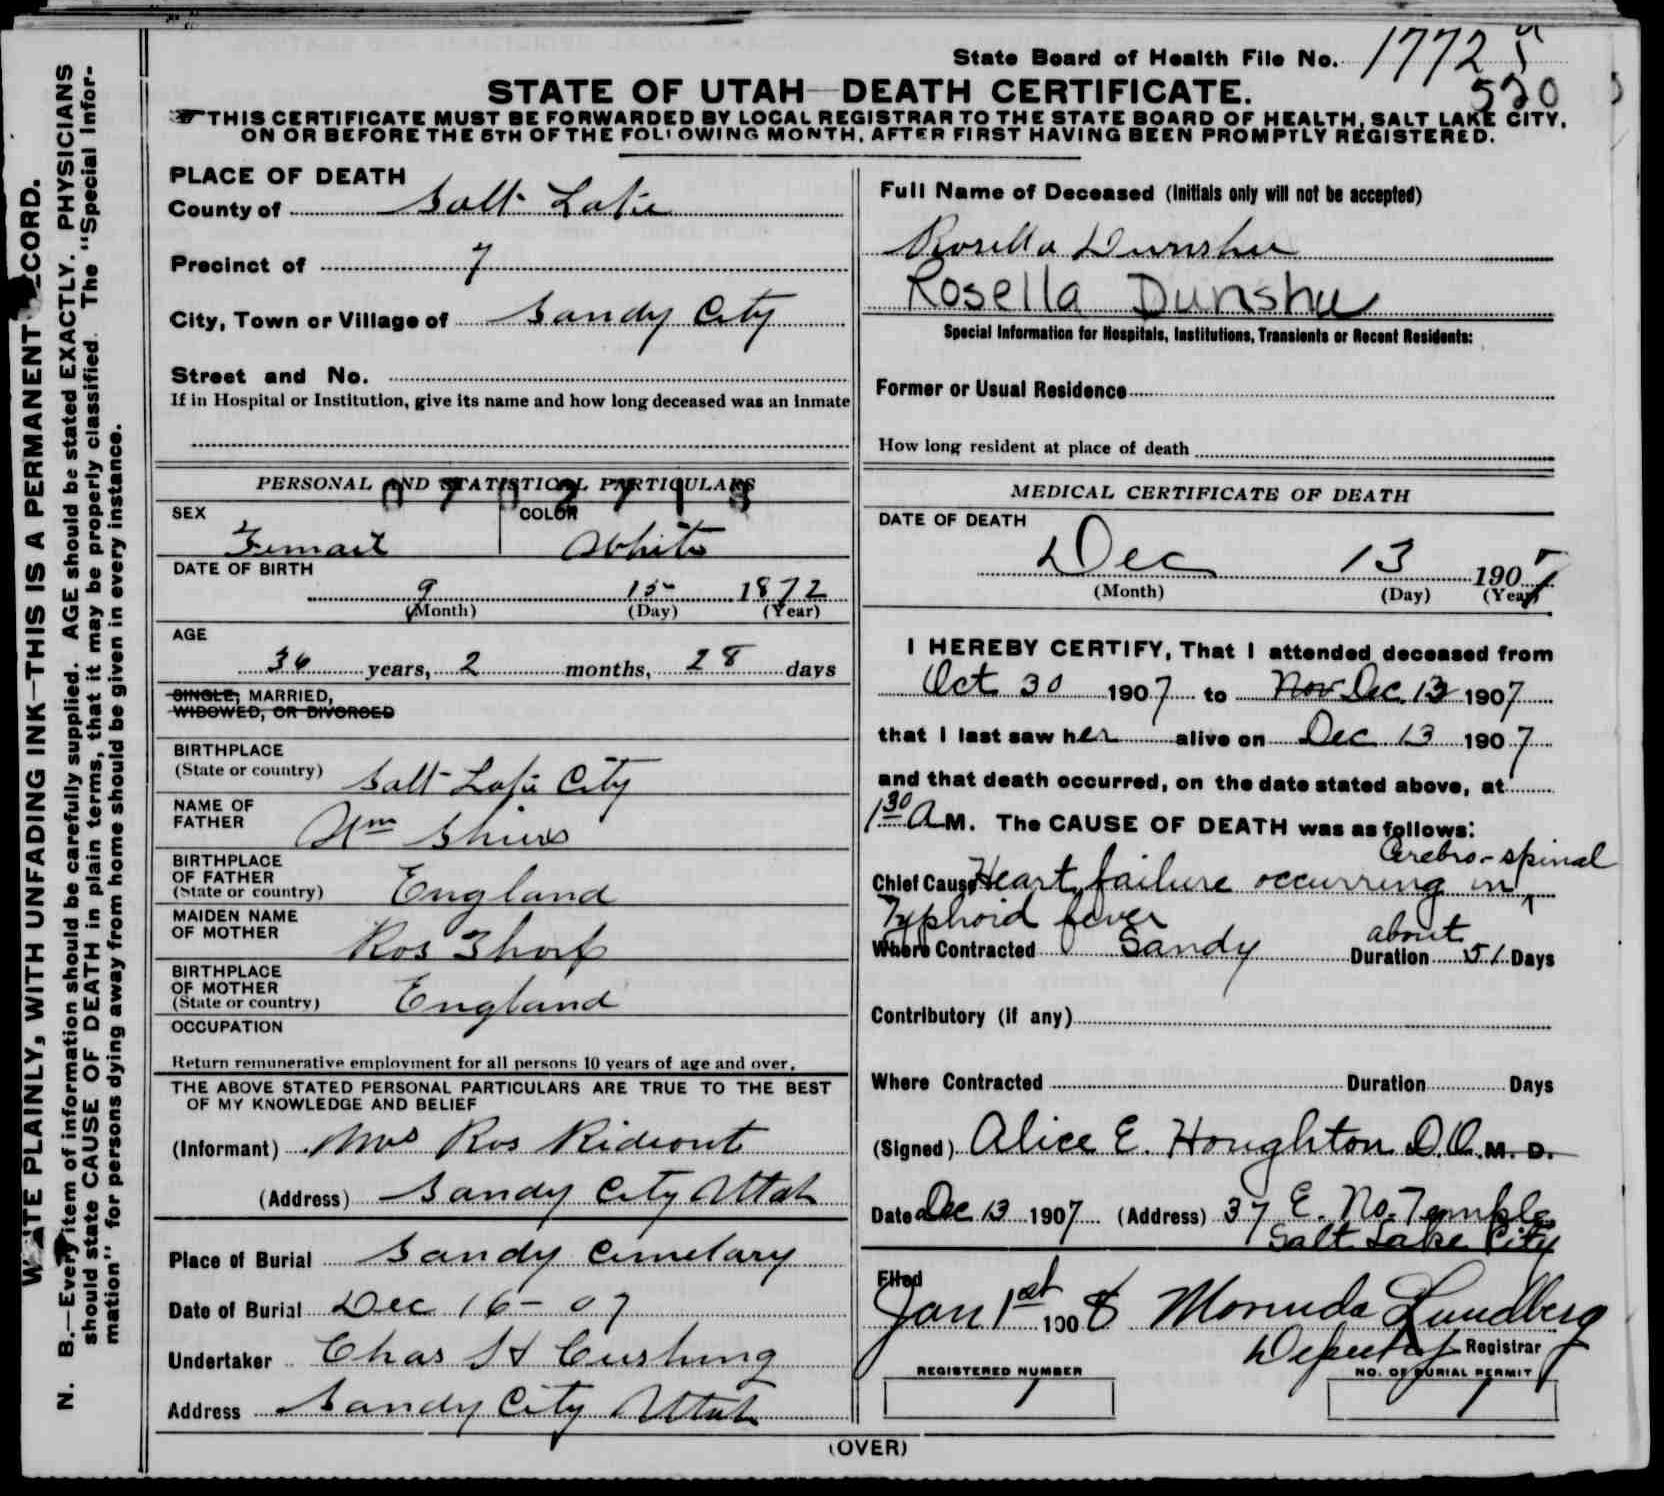 State Board of Health File No. 17725
520
STATE OF UTAH—DEATH CERTIFICATE.
THIS CERTIFICATE MUST BE FORWARDED BY LOCAL REGISTRAR TO THE STATE BOARD OF HEALTH, SALT LAKE CITY,
ON OR BEFORE THE 5TH OF THE FOLLOWING MONTH, AFTER FIRST HAVING BEEN PROMPTLY REGISTERED.
PLAINLY, WITH UNFADING INK—THIS IS A PERMANENT
N. B.—Every item of information should be carefully supplied. AGE should be stated EXACTLY. PHYSICIANS
should state CAUSE OF DEATH in plain terms, that it may be properly classified. The "Special Infor-
mation" for persons dying away from home should be given in every instance.
PLACE OF DEATH
County of Salt Lake
Precinct of 7
City, Town or Village of Sandy City
Street and No.
If in Hospital or Institution, give its name and how long deceased was an inmate
PERSONAL AND STATISTICAL PARTICULARS
SEX
Female
COLOR
White
DATE OF BIRTH
9 15 1872
(Month) (Day) (Year)
AGE
36 years, 2 months, 28 days
SINGLE, MARRIED,
WIDOWED, OR DIVORCED
BIRTHPLACE
(State or country) Salt Lake City
NAME OF
FATHER Wm
BIRTHPLACE
OF FATHER
(State or country) England
MAIDEN NAME
OF MOTHER Ros
BIRTHPLACE
OF MOTHER
(State or country) England
OCCUPATION
Return remunerative employment for all persons 10 years of age and over.
THE ABOVE STATED PERSONAL PARTICULARS ARE TRUE TO THE BEST
OF MY KNOWLEDGE AND BELIEF
(Informant) Mrs Ros Rideout
(Address) Sandy City Utah
Place of Burial Sandy Cemetary
Date of Burial Dec 16 - 07
Undertaker Chas H Cushing
Address Sandy City Utah
Full Name of Deceased (Initials only will not be accepted)
Rosella Dunshu
Rosella Dunshu
Special Information for Hospitals, Institutions, Transients or Recent Residents:
Former or Usual Residence
How long resident at place of death
MEDICAL CERTIFICATE OF DEATH
DATE OF DEATH
Dec 13 1907
(Month) (Day) (Year)
I HEREBY CERTIFY, That I attended deceased from
Oct 30 1907 to Nov Dec 13 1907
that I last saw her alive on Dec 13 1907
and that death occurred, on the date stated above, at
1 30 A M. The CAUSE OF DEATH was as follows:
Cerebro-spinal
Chief Cause Heart failure occurring in
Typhoid fever
Where Contracted Sandy about Duration 51 Days
Contributory (if any)
Where Contracted Duration Days
(Signed) Alice E. Houghton D.O. M. D.
Dated Dec 13 1907 (Address) 37 E. No. Temple
Salt Lake City
Filed
Jan 1st 1908 Lundberg
Deputy Registrar
REGISTERED NUMBER
1
NO. OF BURIAL PERMIT
1
(OVER)